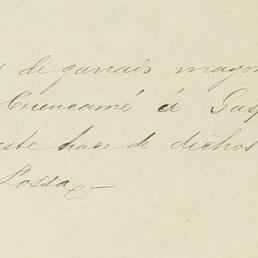 de ganado mayor
Cuencamé á Gasp
este hace de dichos
Possa